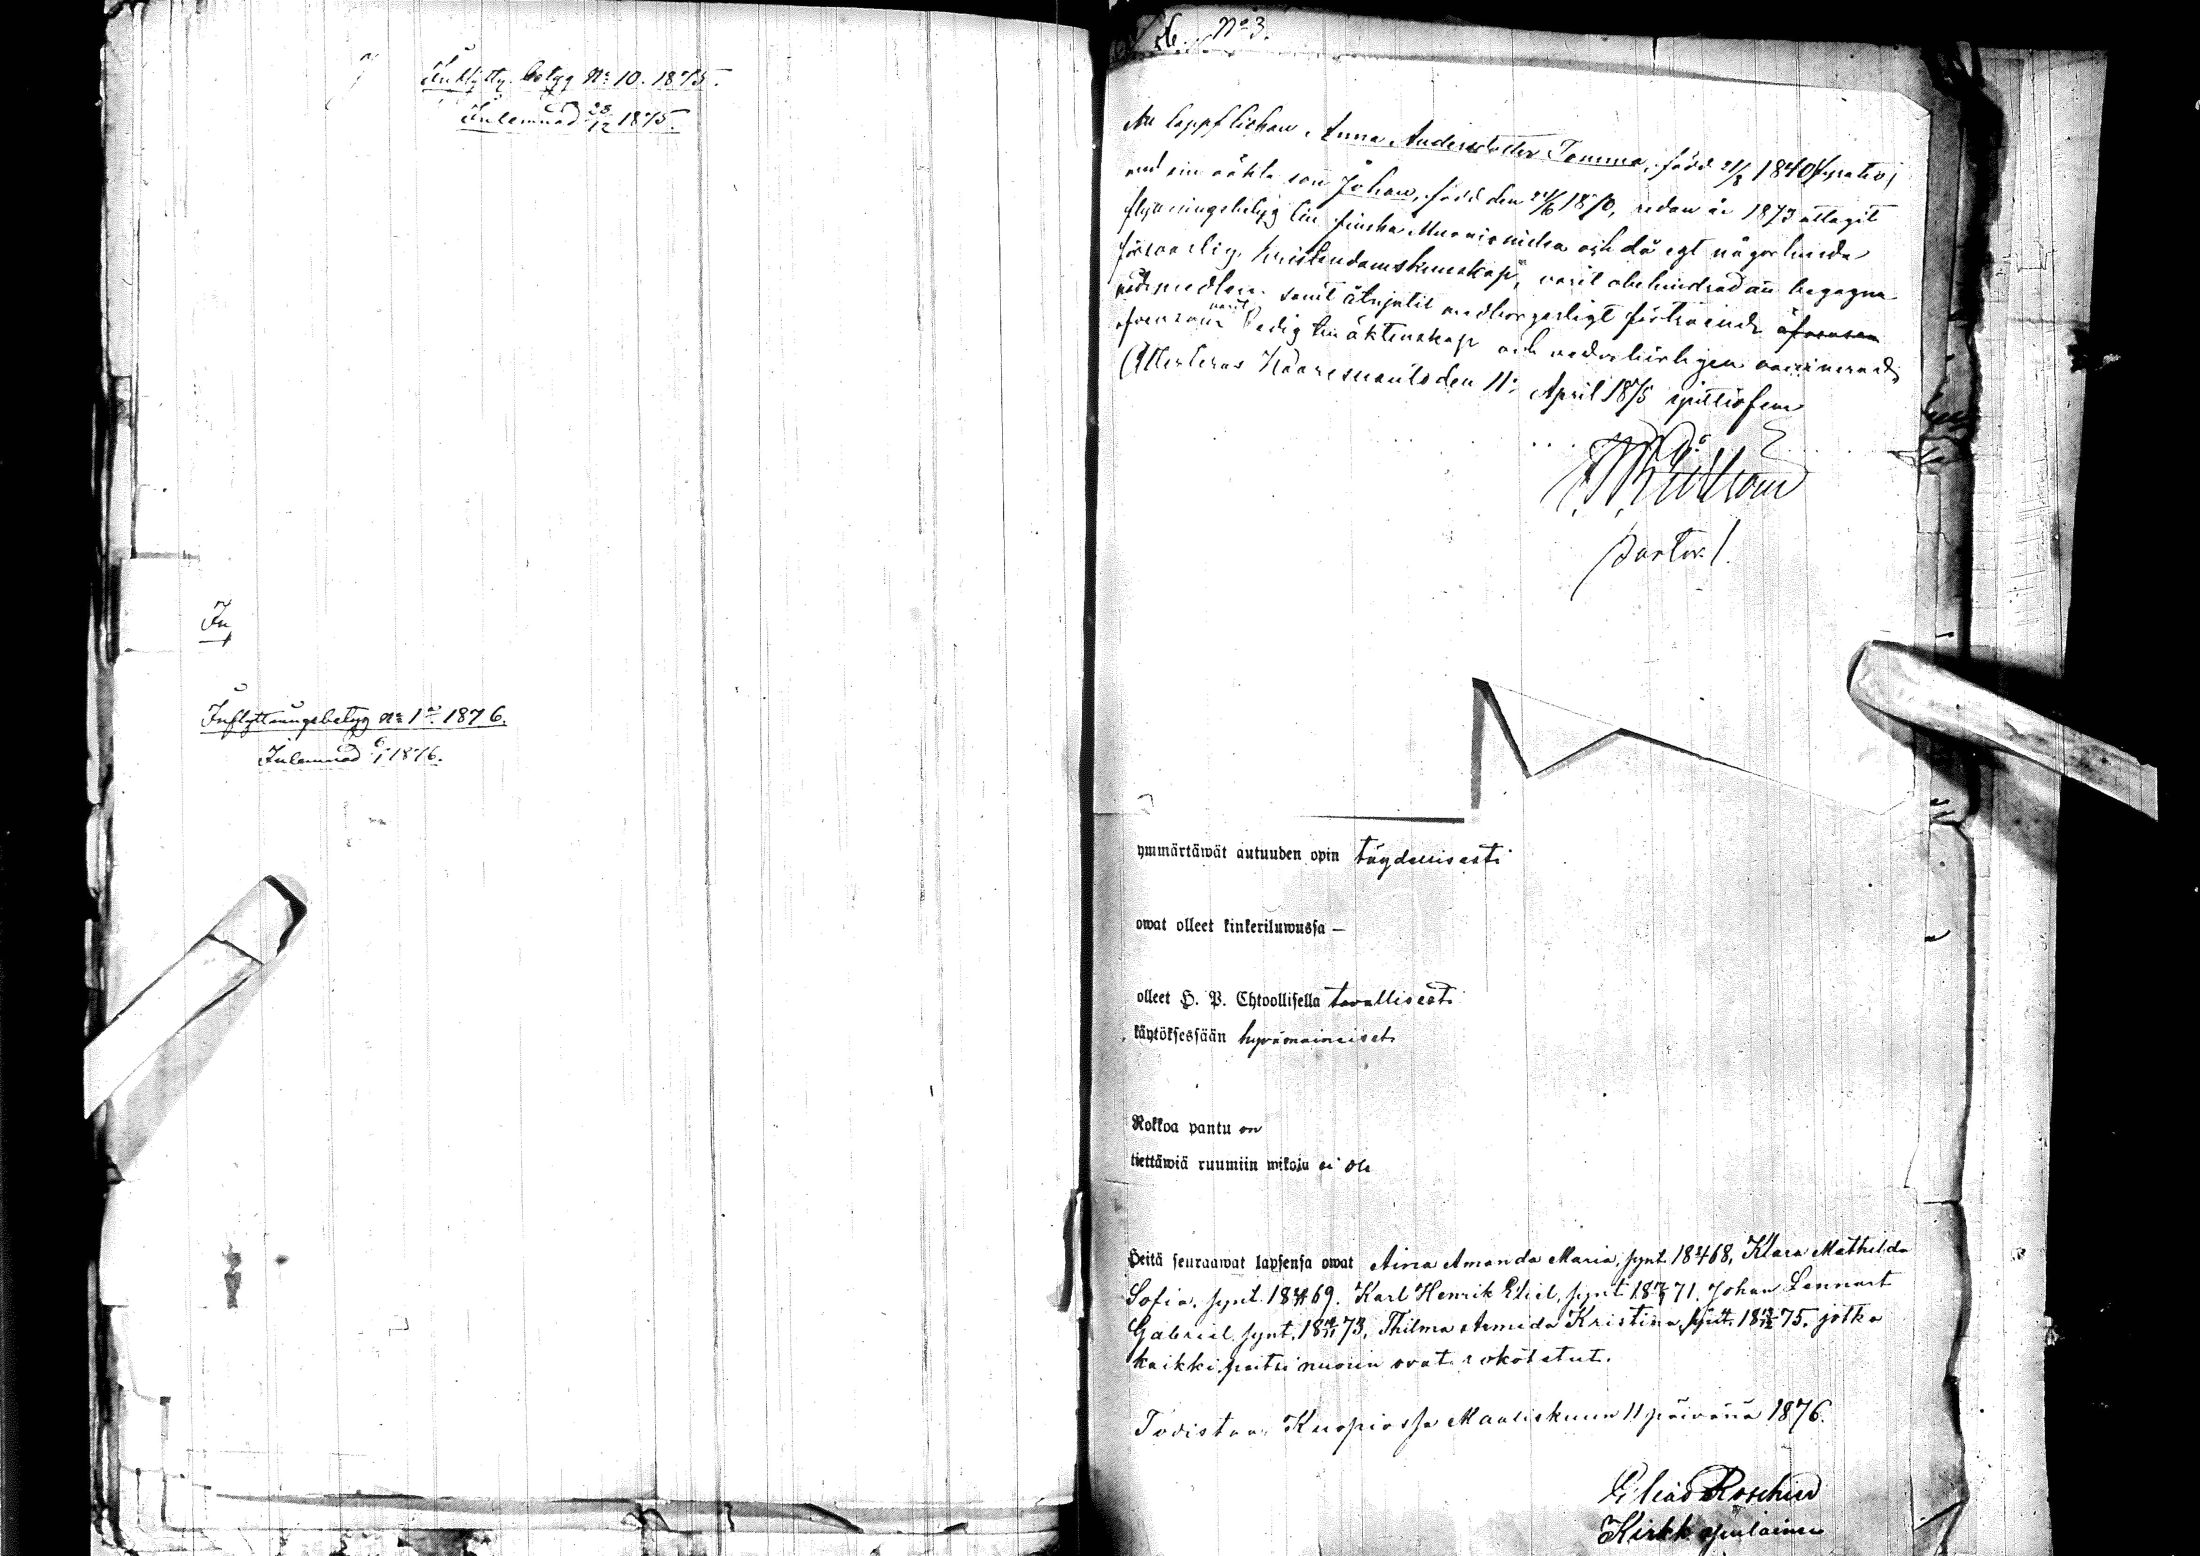 Inflyttn. betyg No 10. 1875.
Inlemnad 28/12 1875.
In
Inflyttningsbetyg No 1 1876.
Inlemnad 6/1 1876.
No 3.
Att lappflickan, Anna Andersdotter Tomma, född 21/3 1840
med sin oäkta son Johan, född den 24/6 1870, redan år 1873 uttagit
flyttningsbetyg till finska Muonioniska och då egt någorlunda
försvarlig kristendomskunskap, varit obehindrad att begagna
nådemedlen samt åtnjutit medborgerligt förtroende äfvensom
äfvensom varit ledig till äktenskap och vederbörligen vaccinerad,
Attesteras Karesuando den 11 April 1875
Pastor.
ymmärtäwät autuuden opin täydellisesti
owat olleet kinkeriluwussa —
olleet H. P. Ehtoollisella tavallisesti
käytöksessään hyvämaineiset
Rokkoa pantu on
tiettäwiä ruumiin wikoja ei ole
Heitä seuraawat lapsensa owat Aina Amanda Maria, synt. 18 68, Klara Mathilda
Sofia, synt. 18 69. Karl Henrik Eliel, synt. 18 71. Johan Lennart
Gabriel, synt. 18 73, Thilma Armida Kristina, synt. 18 75. jotka
kaikki paitsi nuorin ovat rokotetut.
Todistaa Kuopiossa Maaliskuun 11 päivänä 1876.
Elias Roschier
Kirkkoherra